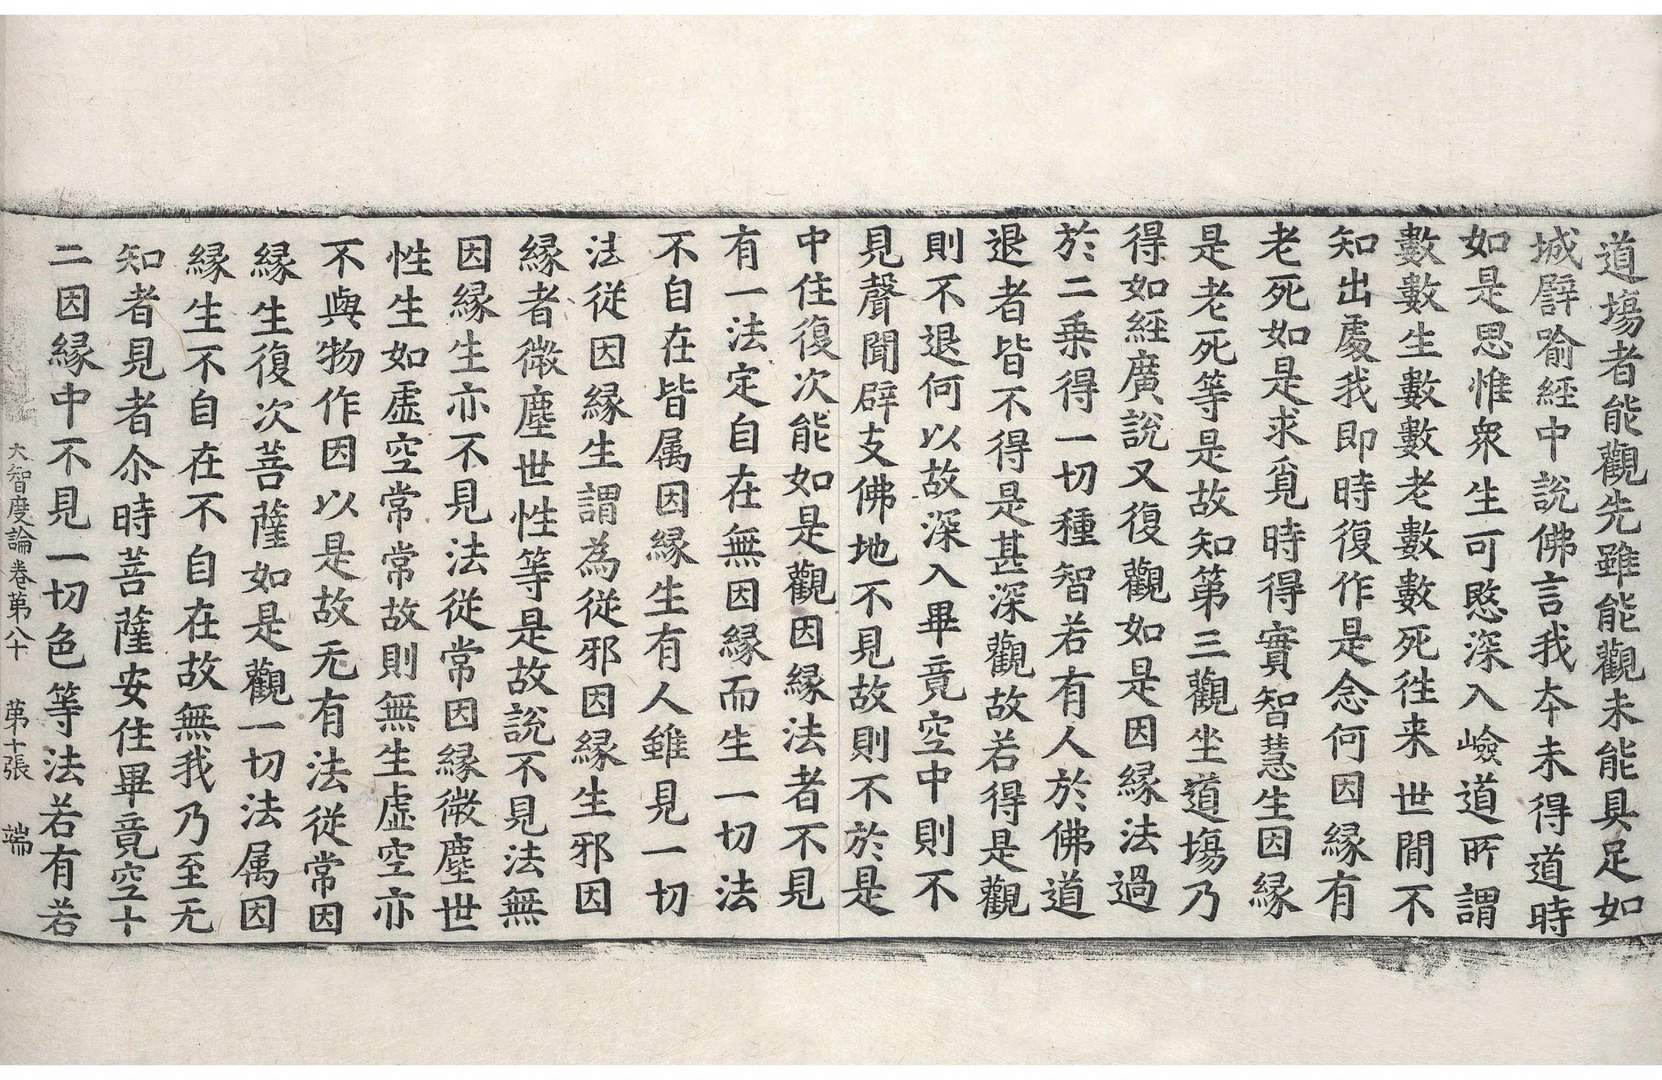 道場者能觀先雖能觀未能具足如
城譬喻經中說佛言我本未得道時
如是思惟衆生可愍深入嶮道所謂
數數生數數老數數死徃来世閒不
知出處我即時復作是念何因縁有
老死如是求覓時得實智慧生因縁
是老死等是故知第三觀坐道塲乃
得如經廣說又復觀如是因縁法過
於二乗得一切種智若有人於佛道
退者皆不得是甚深觀故若得是觀
則不退何以故深入畢竟空中則不
見聲聞辟支佛地不見故則不於是
中住復次能如是觀因縁法者不見
有一法定自在無因縁而生一切法
不自在皆属因縁生有人雖見一切
法從因縁生謂為從邪因縁生邪因
縁者微塵世性等是故說不見法無
因縁生亦不見法從常因縁微塵世
性生如虛空常常故則無生虛空亦
不與物作因以是故无有法從常因
縁生復次菩薩如是觀一切法属因
縁生不自在不自在故無我乃至无
知者見者尒時菩薩安住畢竟空十
二因縁中不見一切色等法若有若
大智度論卷第八十 第十張 端